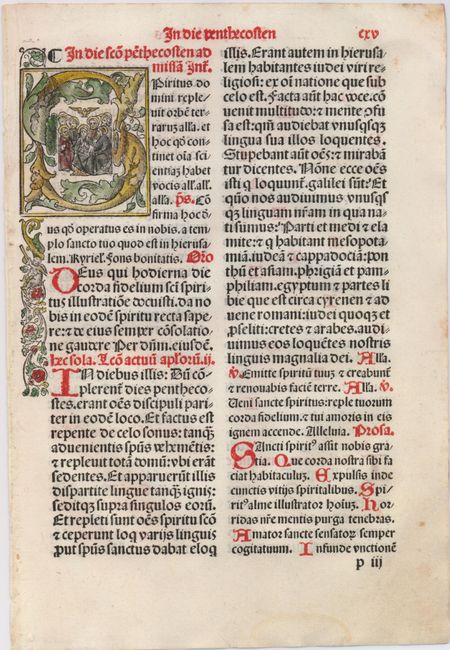 In die penthecosten
cxv
In die scō pēthecosten ad
missā Int.
Spiritus do
mini reple-
uit orbē ter-
raruȝ alla. et
hoc qđ con
tinet oīa sci-
entiaȝ habet
vocis all'a. all'a.
alla. p̄s. Cō
firma hoc de-
us qđ operatus es in nobis. a tem
plo sancto tuo quod est in hierusa-
lem. Kyriel'. Fons bonitatis. Oro
Deus qui hodierna die
corda fidelium sci spiri
tus illustratiōe docuisti. da no
bis in eodē spiritu recta sape-
re: et de eius semper cōsolatio-
ne gaudere Per dn̄m. eiusdē.
hec sola. Lcō actuū apl'orū. ij.
In diebus illis: Dū cō-
plerent dies penthecо-
stes. erant oēs discipuli pari-
ter in eodē loco. Et factus est
repente de celo sonus: tanqȝ
aduenientis spūs vehemētis:
et repleuit totā domū: vbi erāt
sedentes. Et apparuerūt illis
dispartite lingue tanqȝ ignis:
seditqȝ supra singulos eorū.
Et repleti sunt oēs spiritu scō
et ceperunt loq̄ varijs linguis
ꝓut spūs sanctus dabat eloq̄
illis. Erant autem in hierusa-
lem habitantes iudei viri re-
ligiosi: ex oī natione que sub
celo est. Facta aūt hac voce. cō
uenit multitudo: et mente ꝯfu
sa est: qm̄ audiebat vnusqȝsqȝ
lingua sua illos loquentes.
Stupebant aūt oēs: et mirabā
tur dicentes. Nōne ecce oēs
isti q̄ loquunt. galilei sūnt? Et
quō nos audiuimus vnusqȝ
qȝ linguam nr̄am in qua na-
ti sumus? Parti et medi et ela
mite: et q̄ habitant mesopota-
miā. iudeā et cappadociā: pon
thū et asiam. phrigiā et pam-
philiam. egyptum et partes li
bie que est circa cyrenen et ad
uene romani: iudei quoqȝ et
ꝓseliti: cretes et arabes. audi-
uimus eos loquētes nostris
linguis magnalia dei. Alla.
v̄. Emitte spiritū tuuȝ et creabunt
et renouabis faciē terre. Alla. v̄.
Veni sancte spiritus: reple tuorum
corda fidelium. et tui amoris in eis
ignem accende. Alleluia. Prosa.
Sancti spirit⁹ assit nobis gra-
tia. Que corda nostra sibi fa
ciat habitaculuȝ. Expulsis inde
cunctis vitijs spiritalibus. Spi-
rit⁹ alme illustrator hoīuȝ. Hor
ridas nr̄e mentis purga tenebras.
Amator sancte sensatoꝝ semper
cogitatuum. Infunde vnctionē
p iij